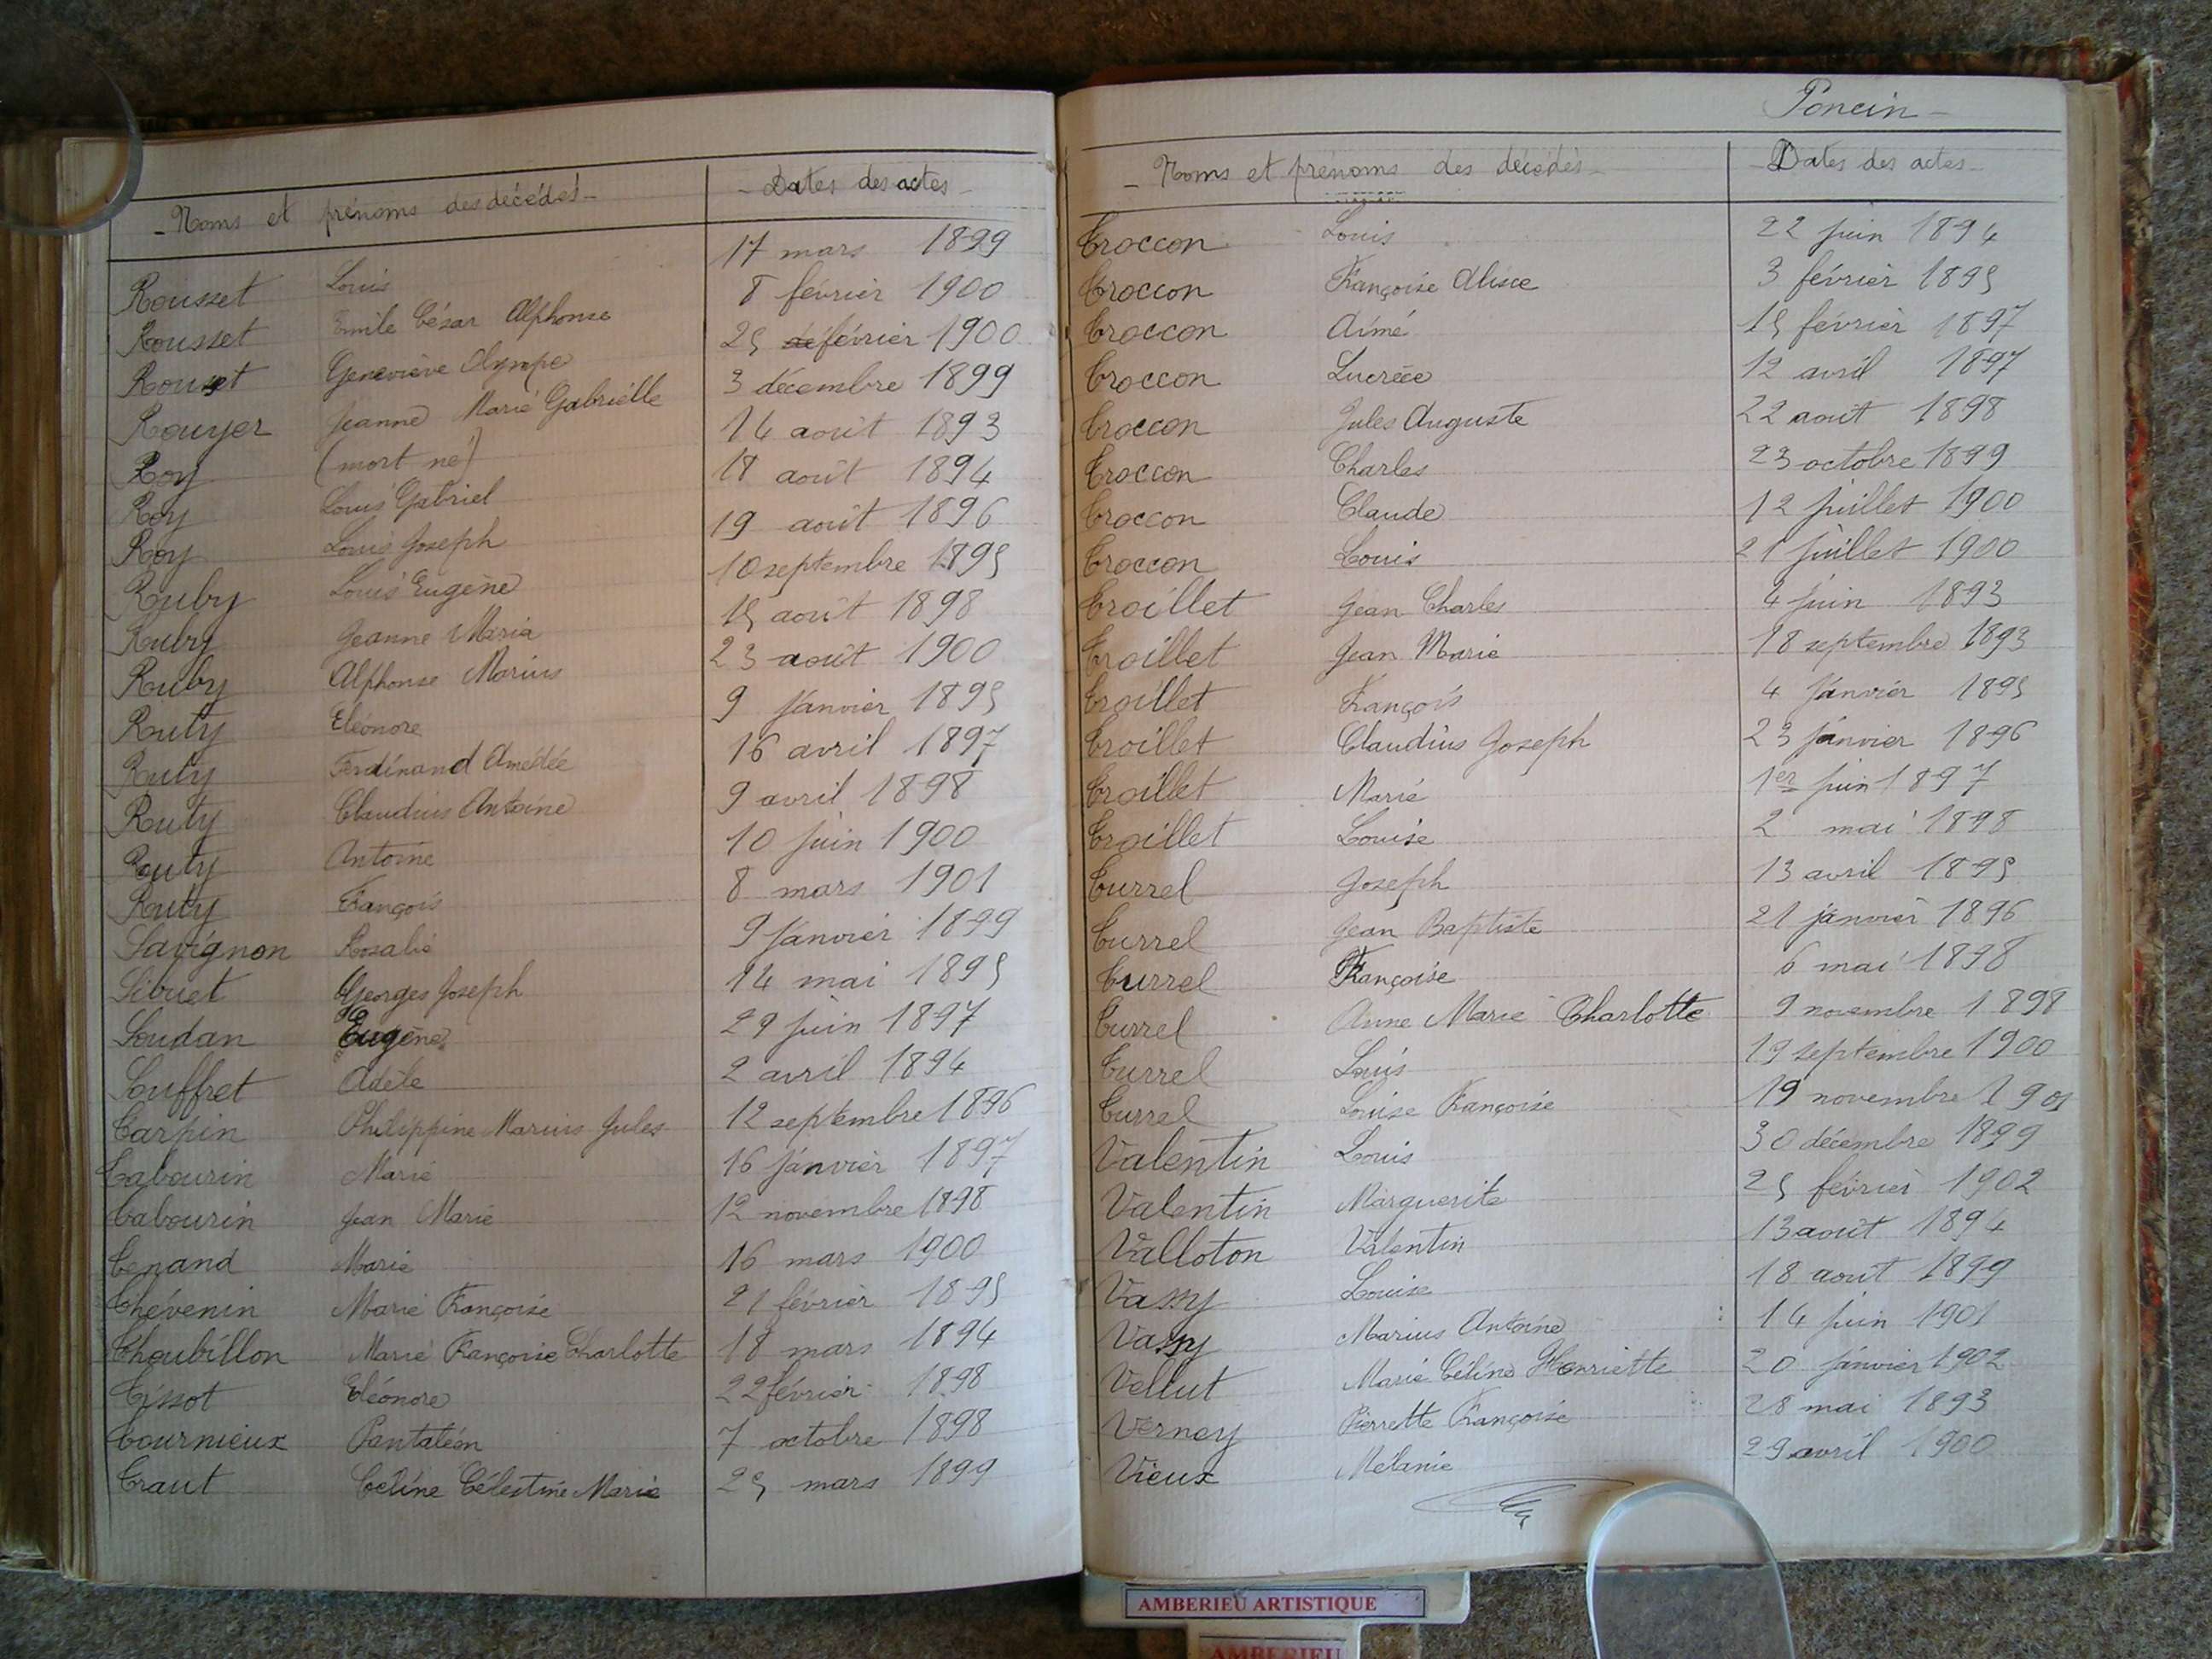 Noms et prénoms des décédés - Dates des actes -
Rousset Louis 17 mars 1899
Rousset Emile César Alphonse 8 février 1900
Rousset Geneviève Olympe 25 février 1900
Rouyer Jeanne Marie Gabrielle 3 décembre 1899
Roy (mort né) 14 août 1893
Roy Louis Gabriel 18 août 1894
Roy Louis Joseph 19 août 1896
Ruby Louis Eugène 10 septembre 1895
Ruby Jeanne Maria 15 août 1898
Ruby Alphonse Marius 23 août 1900
Ruty Eléonore 9 janvier 1895
Ruty Ferdinand Amédée 16 avril 1897
Ruty Claudius Antoine 9 avril 1898
Ruty Antoine 10 juin 1900
Ruty François 8 mars 1901
Savignon Rosalie 9 janvier 1899
Sibuet Georges Joseph 14 mai 1895
Soudan Eugène 29 juin 1897
Souffret Adèle 2 avril 1894
Tarpin Philippine Marius Jules 12 septembre 1896
Tabourin Marie 16 janvier 1897
Tabourin Jean Marie 12 novembre 1898
Tenand Marie 16 mars 1900
Thévenin Marie Françoise 21 février 1895
Thoubillon Marie Françoise Charlotte 18 mars 1894
Tissot Eléonore 22 février 1898
Tournieux Pantaléon 7 octobre 1898
Traut Céline Célestine Marie 25 mars 1899
Poncin -
- Noms et prénoms des décédés - Dates des actes -
Troccon Louis 22 juin 1894
Troccon Françoise Alisce 3 février 1895
Troccon Aimé 15 février 1897
Troccon Lucrèce 12 avril 1897
Troccon Jules Auguste 22 août 1898
Troccon Charles 23 octobre 1899
Troccon Claude 12 juillet 1900
Troccon Louis 21 juillet 1900
Troillet Jean Charles 4 juin 1893
Troillet Jean Marie 18 septembre 1893
Troillet François 4 janvier 1895
Troillet Claudius Joseph 23 janvier 1896
Troillet Marie 1er juin 1897
Troillet Louise 2 mai 1898
Turrel Joseph 13 avril 1895
Turrel Jean Baptiste 21 janvier 1896
Turrel Françoise 6 mai 1898
Turrel Anne Marie Charlotte 9 novembre 1898
Turrel Louis 19 septembre 1900
Turrel Louise Françoise 19 novembre 1901
Valentin Louis 30 décembre 1899
Valentin Marguerite 25 février 1902
Valloton Valentin 13 août 1894
Vassy Louise 18 août 1899
Vassy Marius Antoine 14 juin 1901
Vellut Marie Céline Henriette 20 janvier 1902
Verney Pierrette Françoise 28 mai 1893
Vieux Mélanie 29 avril 1900
AMBERIEU ARTISTIQUE
AMBERIEU